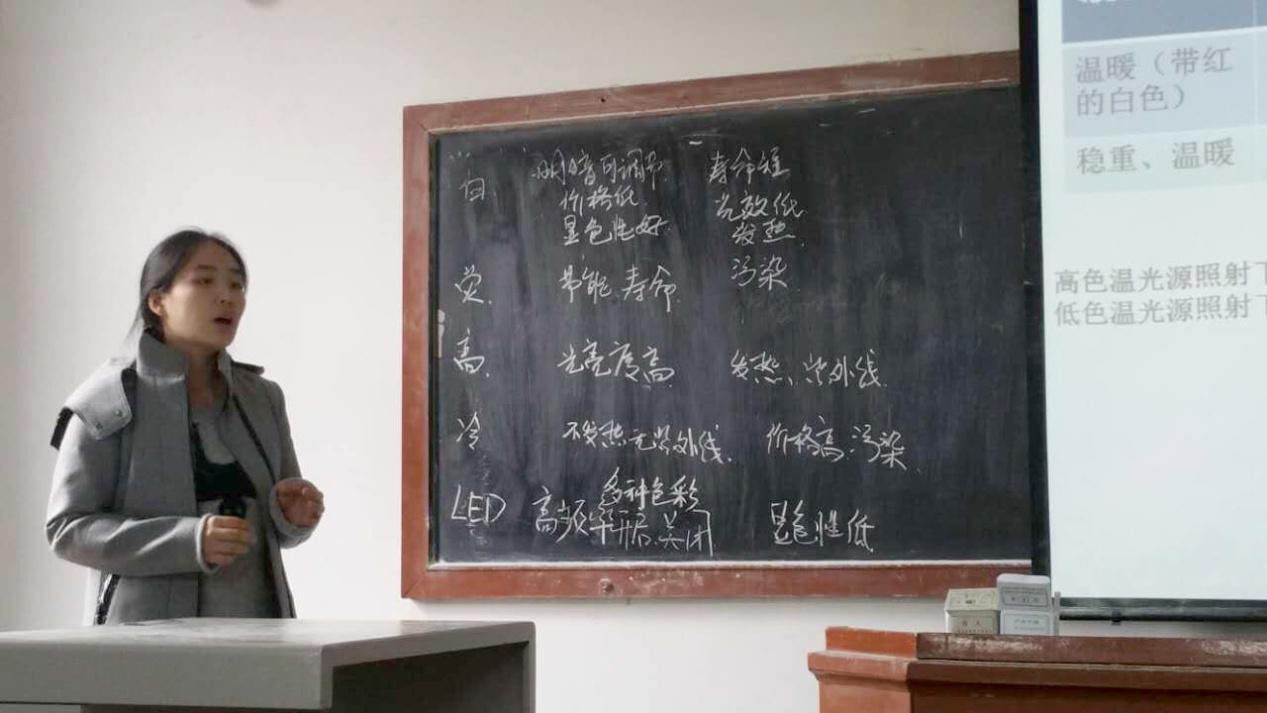 白 明暗可调节 寿命短
价格低 光效低
显色性好 发热
荧 节能 寿命 污染
高 光亮度高 发热、紫外线
冷 不发热无紫外线 价格高 污染
多种色彩
LED 高频率开启 关闭 显色性低
温暖（带红
的白色）
稳重、温暖
高色温光源照射下
低色温光源照射下